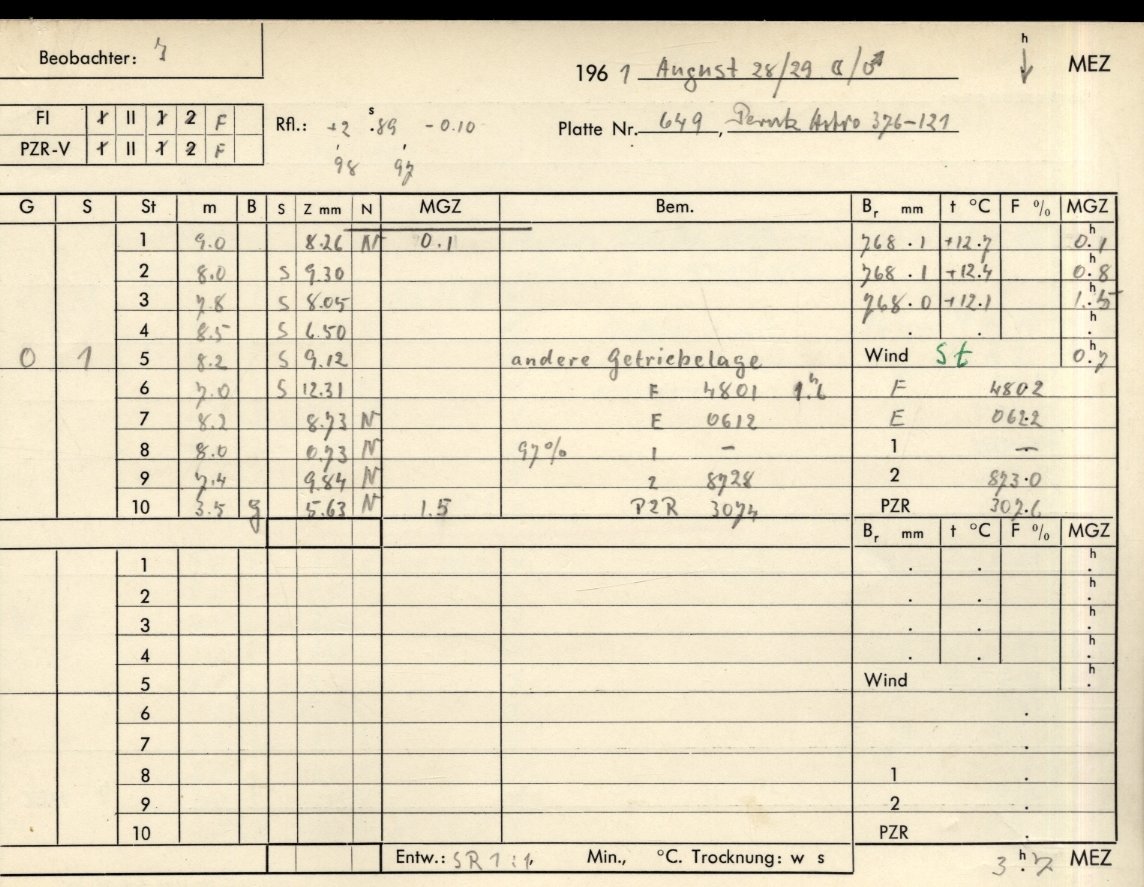 Beobachter: 7
1961 August 28/29 ☾/♂ h MEZ
FI I II 1 2 F
PZR-V I II 1 2 F
Rfl.: +2 s .89 -0.10
98 97
Platte Nr. 649, Perutz Astro 376-121
G S St m B S Z mm N MGZ Bem. Br mm t °C F % MGZ
1 9.0 8.26 N 0.1 768.1 +12.7 0.h1
2 8.0 S 9.30 768.1 +12.4 0.h8
3 7.8 S 8.05 768.0 +12.1 1.h5
4 8.5 S 6.50 . . h.
0 1 5 8.2 S 9.12 andere Getriebelage Wind St 0.h7
6 7.0 S 12.31 F 4801 1.h6 F 4802
7 8.2 8.73 N E 0612 E 062.2
8 8.0 0.73 N 97% 1 – 1 –
9 7.4 9.84 N 2 8728 2 873.0
10 3.5 g 5.63 N 1.5 PZR 3074 PZR 307.6
Br mm t °C F % MGZ
1 . . h.
2 . . h.
3 . . h.
4 . . h.
5 Wind h.
6 .
7 .
8 1 .
9 2 .
10 PZR .
Entw.: SR 1:1, Min., °C. Trocknung: w s 3.h7 MEZ